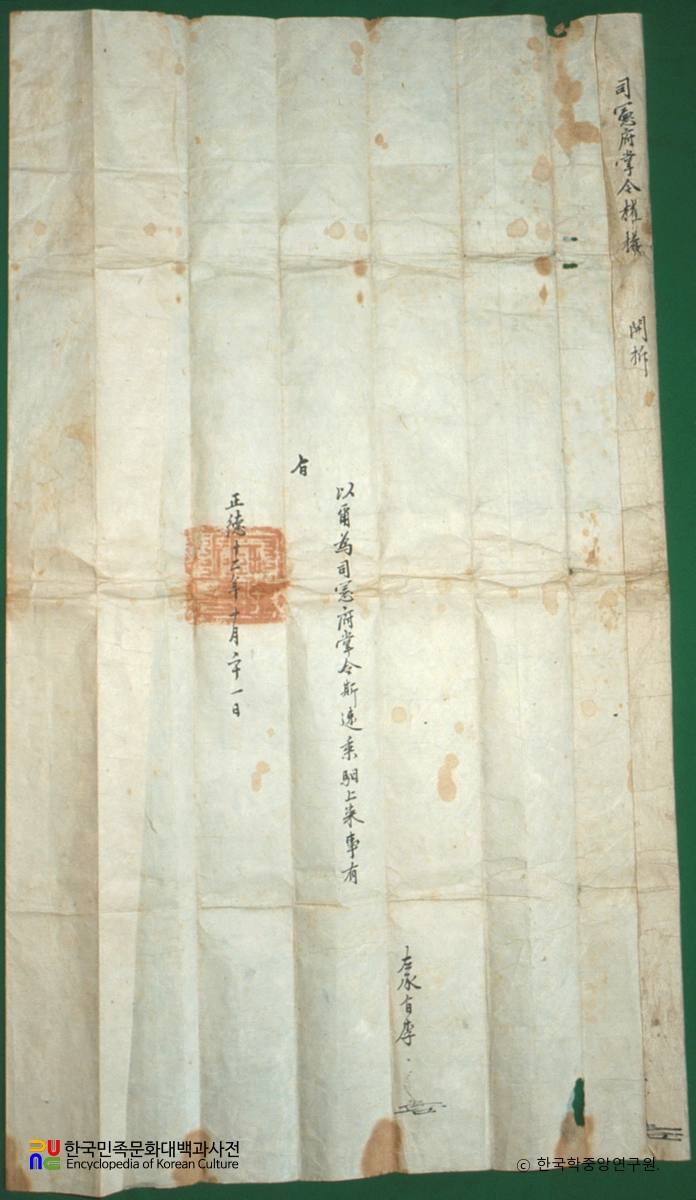 司憲府掌令權橃 開拆
左承旨李
以爾為司憲府掌令斯速乘馹上来事有
旨
正德十二年十月二十一日
한국민족문화대백과사전
Encyclopedia of Korean Culture
© 한국학중앙연구원.